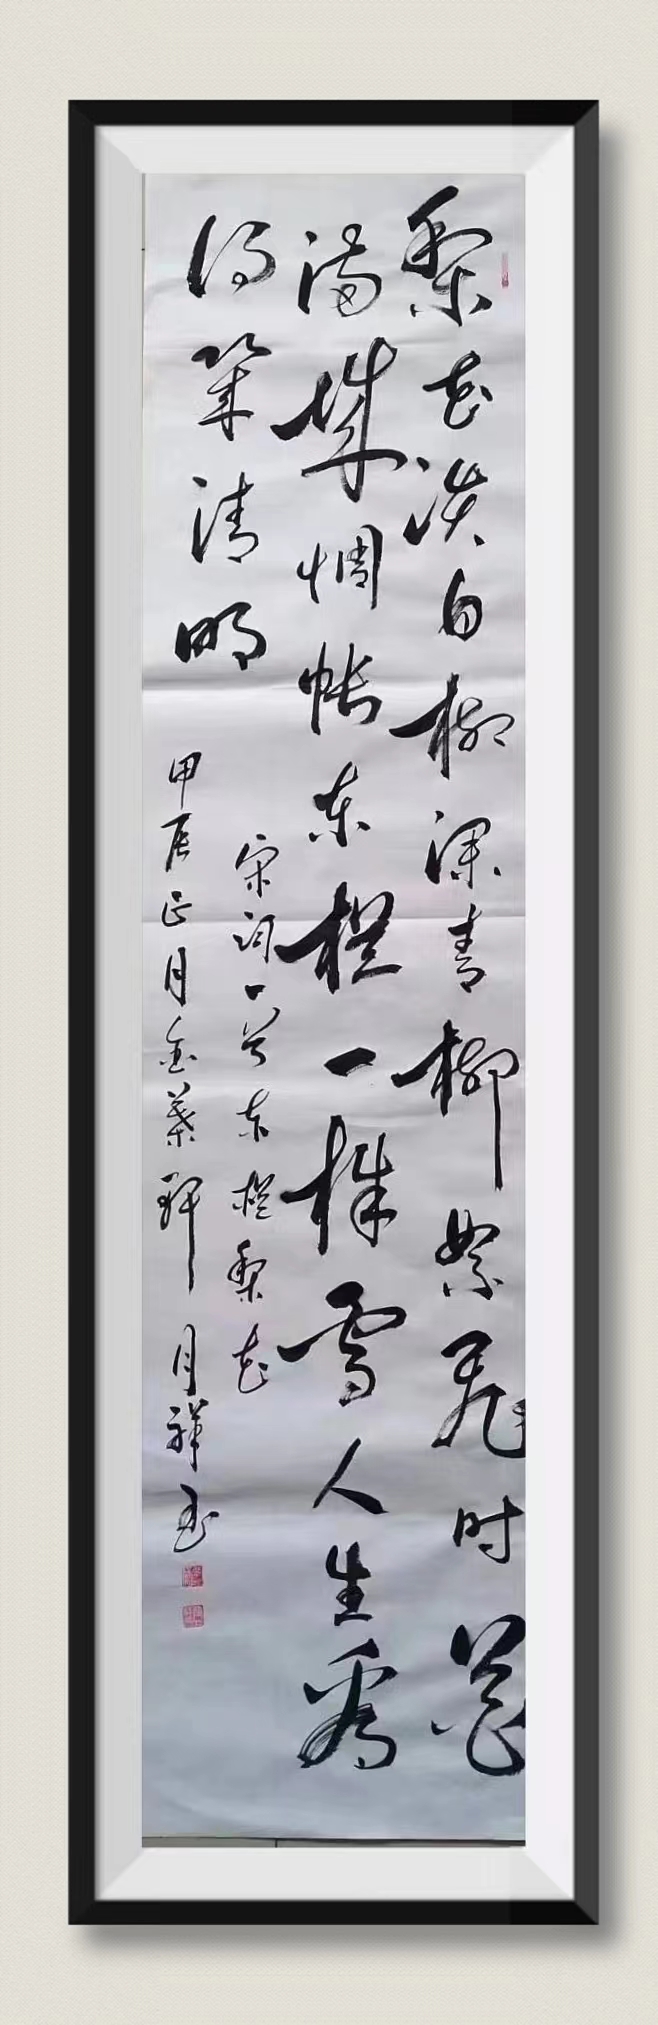 梨花淡白柳深青柳絮飛时花
满城惆怅东栏一株雪人生看
得几清明
宋词一首东栏梨花
甲辰正月金叶轩月祥书